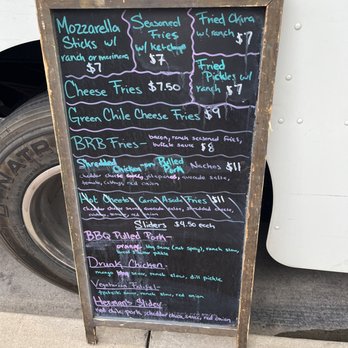 Mozzarella
Sticks w/
ranch or marinara
$7
Seasoned
Fries
w/ ketchup
$7
Fried Okra
w/ ranch
$7
Fried
Pickles w/
ranch $7
Cheese Fries $7.50
Green Chile Cheese Fries $9
BRB Fries- bacon, ranch seasoned fries,
buffalo sauce $8
Shredded Chicken or Pulled Pork Nachos $11
cheddar cheese jalapenos, avocado salsa,
tomato, red onion
Hot Carne Asada Fries $11
cheddar cheese avocado salsa, shredded cheese,
onion
Sliders $4.50 each
BBQ Pulled Pork-
bbq sauce (not spicy), ranch slaw,
pickle
Drunk Chicken-
mango sear, ranch slaw, dill pickle
Vegetarian Falafel-
slaw, red onion
Herman's Slider-
red chile pork, cheddar cheese, red onion